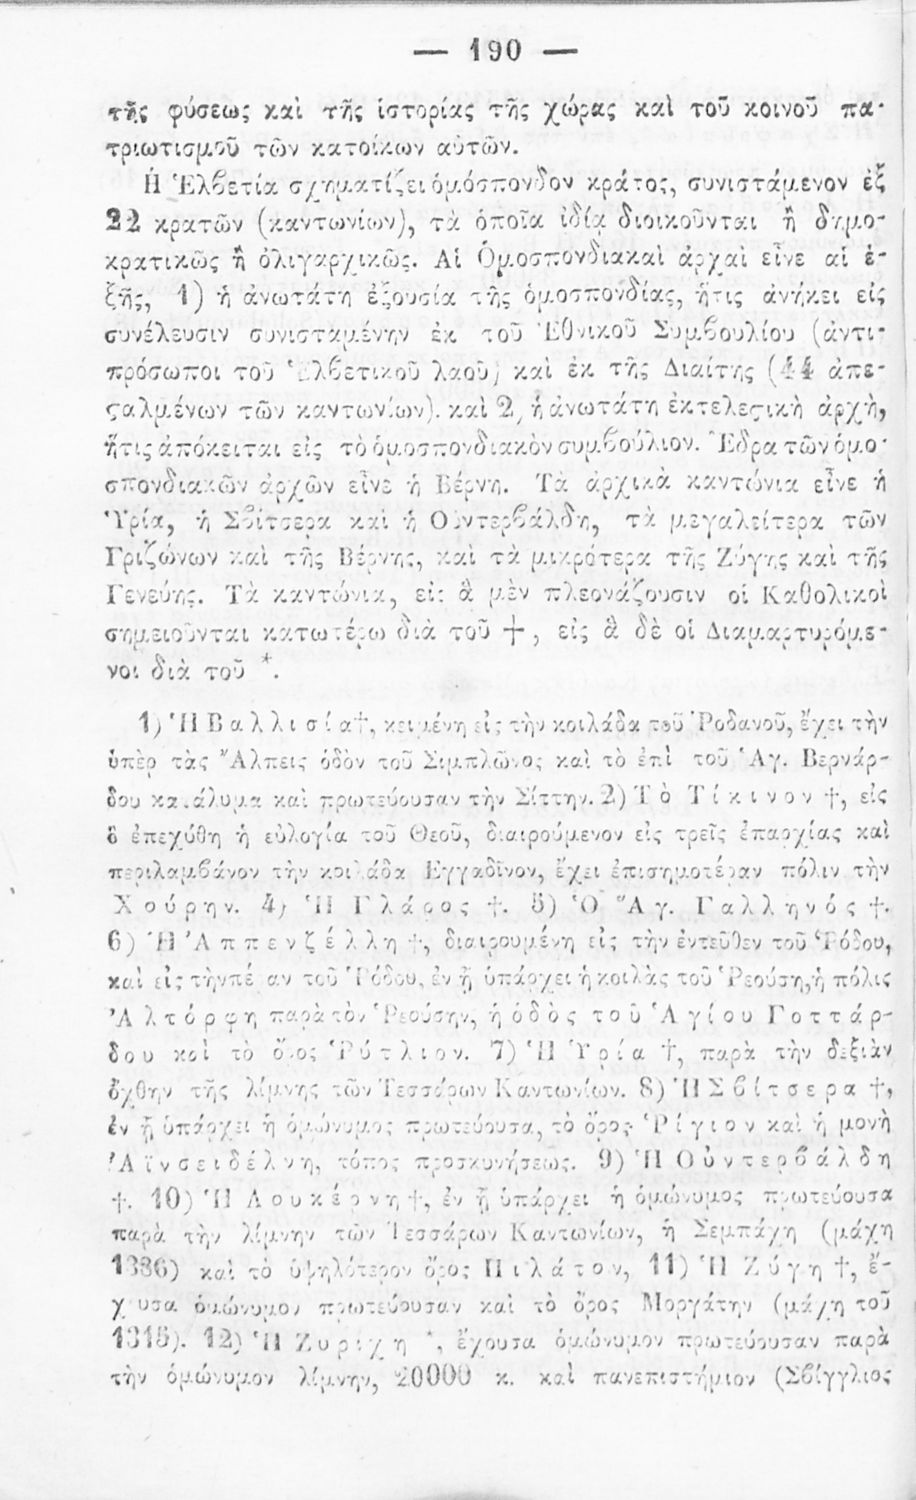 — 190 —
τῆς φύσεως καὶ τῆς ἱστορίας τῆς χώρας καὶ τοῦ κοινοῦ πα-
τριωτισμοῦ τῶν κατοίκων αὐτῶν.
Ἡ Ἑλβετία σχηματίζει ὁμόσπονδον κράτος, συνιστάμενον ἐξ
22 κρατῶν (καντωνίων), τὰ ὁποῖα ἰδίᾳ διοικοῦνται ἢ δημο-
κρατικῶς ἢ ὀλιγαρχικῶς. Αἱ Ὁμοσπονδιακαὶ ἀρχαὶ εἶνε αἱ ἑ-
ξῆς, 1) ἡ ἀνωτάτη ἐξουσία τῆς ὁμοσπονδίας, ἥτις ἀνήκει εἰς
συνέλευσιν συνισταμένην ἐκ τοῦ Ἐθνικοῦ Συμβουλίου (ἀντι-
πρόσωποι τοῦ Ἑλβετικοῦ λαοῦ) καὶ ἐκ τῆς Διαίτης (44 ἀπε-
ϛαλμένων τῶν καντωνίων). καὶ 2) ἡ ἀνωτάτη ἐκτελεϛικὴ ἀρχὴ,
ἥτις ἀπόκειται εἰς τὸ ὁμοσπονδιακὸν συμβούλιον. Ἕδρα τῶν ὁμο-
σπονδιακῶν ἀρχῶν εἶνε ἡ Βέρνη. Τὰ ἀρχικὰ καντώνια εἶνε ἡ
Ὑρία, ἡ Σβίτσερα καὶ ἡ Οὐντερβάλδη, τὰ μεγαλείτερα τῶν
Γριζώνων καὶ τῆς Βέρνης, καὶ τὰ μικρότερα τῆς Ζύγης καὶ τῆς
Γενεύης. Τὰ καντώνια, εἰς ἃ μὲν πλεονάζουσιν οἱ Καθολικοὶ
σημειοῦνται κατωτέρω διὰ τοῦ †, εἰς ἃ δὲ οἱ Διαμαρτυρόμε-
νοι διὰ τοῦ *.
1) Ἡ Βαλλισία †, κειμένη εἰς τὴν κοιλάδα τοῦ Ῥοδανοῦ, ἔχει τὴν
ὑπὲρ τὰς Ἄλπεις ὁδὸν τοῦ Σιμπλῶνος καὶ τὸ ἐπὶ τοῦ Ἁγ. Βερνάρ-
δου κατάλυμα καὶ πρωτεύουσαν τὴν Σίττην. 2) Τὸ Τίκινον †, εἰς
ὃ ἐπεχύθη ἡ εὐλογία τοῦ Θεοῦ, διαιρούμενον εἰς τρεῖς ἐπαρχίας καὶ
περιλαμβάνον τὴν κοιλάδα Ἐγγαδῖνον, ἔχει ἐπισημοτέραν πόλιν τὴν
Χούρην. 4) Ἡ Γλάρος †. 5) Ὁ Ἅγ. Γαλληνός †.
6) Ἡ Ἀππενζέλλη †, διαιρουμένη εἰς τὴν ἐντεῦθεν τοῦ Ῥόδου,
καὶ εἰς τὴν πέραν τοῦ Ῥόδου, ἐν ᾗ ὑπάρχει ἡ κοιλὰς τοῦ Ῥεούση, ἡ πόλις
Ἀλτόρφη παρὰ τὸν Ῥεούσην, ἡ ὁδὸς τοῦ Ἁγίου Γοττάρ-
δου καὶ τὸ ὄρος Ῥύτλιον. 7) Ἡ Ὑρία †, παρὰ τὴν δεξιὰν
ὄχθην τῆς λίμνης τῶν Τεσσάρων Καντωνίων. 8) Ἡ Σβίτσερα †,
ἐν ᾗ ὑπάρχει ἡ ὁμώνυμος πρωτεύουσα, τὸ ὄρος Ῥίγιον καὶ ἡ μονὴ
Ἀϊνσειδέλνη, τόπος προσκυνήσεως. 9) Ἡ Οὐντερβάλδη
†. 10) Ἡ Λουκέρνη †, ἐν ᾗ ὑπάρχει ἡ ὁμώνυμος πρωτεύουσα
παρὰ τὴν λίμνην τῶν Τεσσάρων Καντωνίων, ἡ Σεμπάχη (μάχη
1386) καὶ τὸ ὑψηλότερον ὄρος Πιλάτον, 11) Ἡ Ζύγη †, ἔ-
χουσα ὁμώνυμον πρωτεύουσαν καὶ τὸ ὄρος Μοργάτην (μάχη τοῦ
1315). 12) Ἡ Ζυρίχη *, ἔχουσα ὁμώνυμον πρωτεύουσαν παρὰ
τὴν ὁμώνυμον λίμνην, 20000 κ. καὶ πανεπιστήμιον (Σβίγγλιος